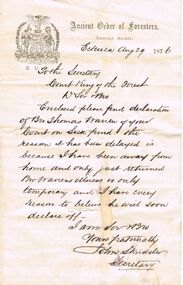 Ancient Order of Foresters,
Friendly Society.
Echuca Aug 29 1876
To the Secretary
Court King of the Forest
D Sir & Bro
Enclosed please find declaration
of Bro Thomas Warren of your
Court on Sick fund the
reason it has been delayed is
because I have been away from
home and only just returned
Bro Warrens illness is only
temporary and I have every
reason to believe he will soon
declare off.
I am Sir & Bro
Yours fraternally
John
Secretary